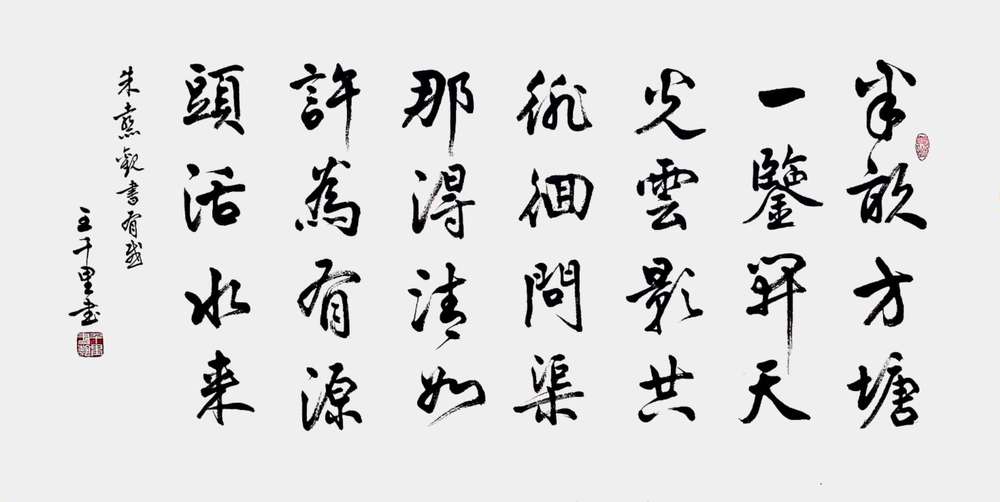 半畝方塘
一鑒開天
光雲影共
徘徊問渠
那得清如
許為有源
頭活水来
朱熹觀書有感
王千里書